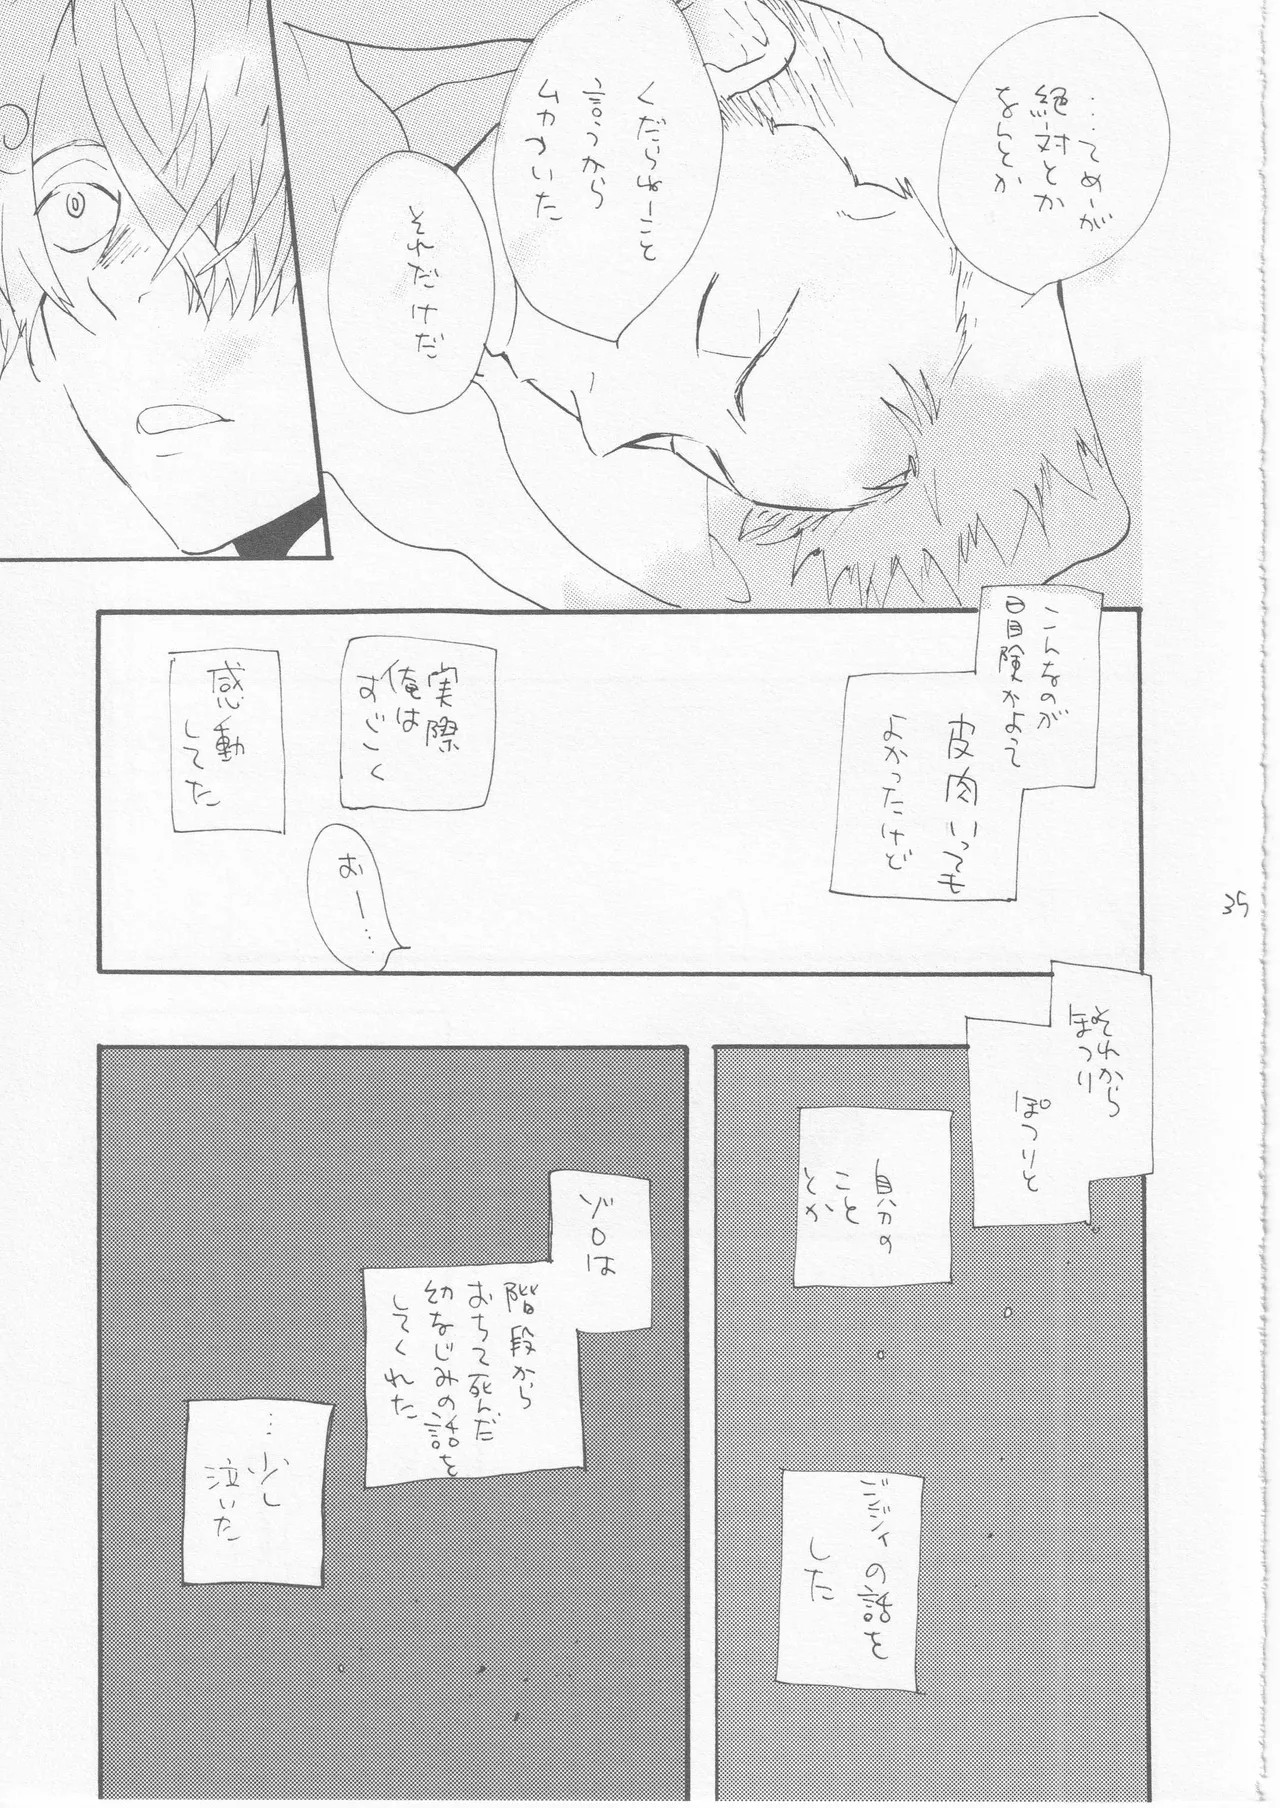 …てめーが
絶対とか
なんとか
くだらねーこと
言うから
ムカついた
それだけだ
こんなのが
冒険かよって
皮肉いっても
よかったけど
実際
俺は
すごく
感動
してた
おー…
それから
ぽつり
ぽつりと
自分の
こと
とか
ジジィの話を
した
ゾロは
階段から
おちて死んだ
幼なじみの話を
してくれた
…少し
泣いた
35